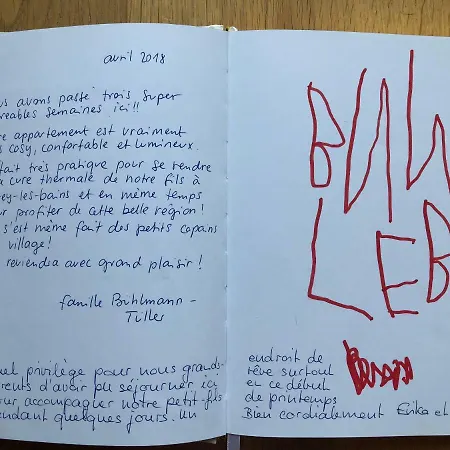 avril 2018
us avons passé trois super
réables semaines ici!!
re appartement est vraiment
s cosy, confortable et lumineux.
fait très pratique pour se rendre
a cure thermale de notre fils à
ey-les-bains et en même temps
ur profiter de cette belle région!
s'est même fait des petits copains
village!
reviendra avec grand plaisir!
famille Bühlmann -
Tiller
uel privilège pour nous grands-
rents d'avoir pu séjourner ici
our accompagner notre petit-fils
endant quelques jours. Un
LEB
endroit de
rêve surtout
en ce début
de printemps
Bien cordialement Erika et